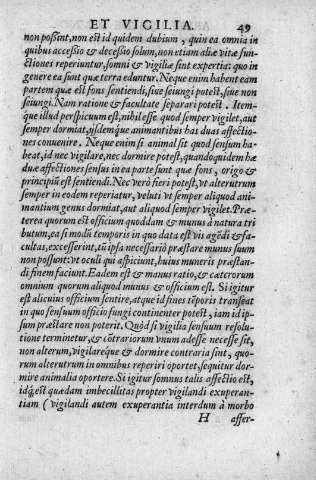 ET VIGILIA. 49
non possint, non est id quidem dubium, quin ea omnia in
quibus accessio & decessio solum, non etiam aliæ vitæ fun-
ctiones reperiuntur, somni & vigiliæ sint expertia: quo in
genere ea sunt quæ terra eduntur. Neque enim habent eam
partem quæ est fons sentiendi, siue seiungi potest, siue non
seiungi. Nam ratione & facultate separari potest. Item-
que illud perspicuum est, nihil esse quod semper vigilet, aut
semper dormiat, ijsdemque animantibus has duas affectio-
nes conuenire. Neque enim si animal sit quod sensum ha-
beat, id nec vigilare, nec dormire potest, quandoquidem hæ
duæ affectiones sensus in ea parte sunt quæ fons, origo &
principiū est sentiendi. Nec verò fieri potest, vt alterutrum
semper in eodem reperiatur, veluti vt semper aliquod ani-
mantium genus dormiat, aut aliquod semper vigilet. Præ-
terea quorum est officium quoddam & munus à natura tri
butum, ea si modū temporis in quo data est vis agēdi & fa-
cultas, excesserint, tū ipsa necessariò præstare munus suum
non possunt: vt oculi qui aspiciunt, huius muneris præstan-
di finem faciunt. Eadem est & manus ratio, & cæterorum
omnium quorum aliquod munus & officium est. Si igitur
est alicuius officium sentire, atque id fines tēporis transeat
in quo sensum officio fungi continenter potest, iam id ip-
sum præstare non poterit. Quòd si vigilia sensuum resolu-
tione terminetur, & cōtrariorum vnum adesse necesse sit,
non alterum, vigilareque & dormire contraria sint, quo-
rum alterutrum in omnibus reperiri oportet, sequitur dor-
mire animalia oportere. Si igitur somnus talis affectio est,
idq́; est quædam imbecillitas propter vigilandi exuperan-
tiam (vigilandi autem exuperantia interdum à morbo
H affer-